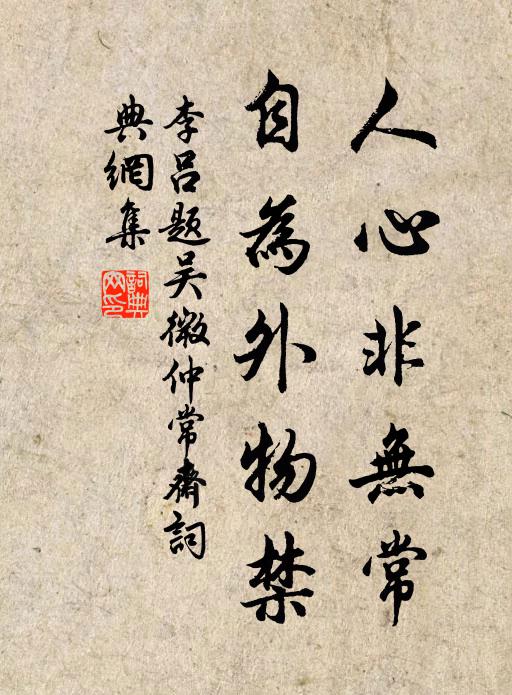 人心非無常
自為外物禁
李呂題吳微仲常齋詞
典網集
詞典
网印